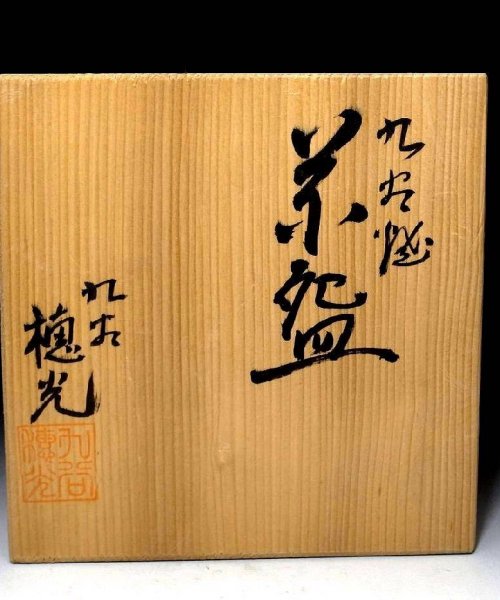 九谷焼
茶盌
九谷
穂光
九谷
穂光